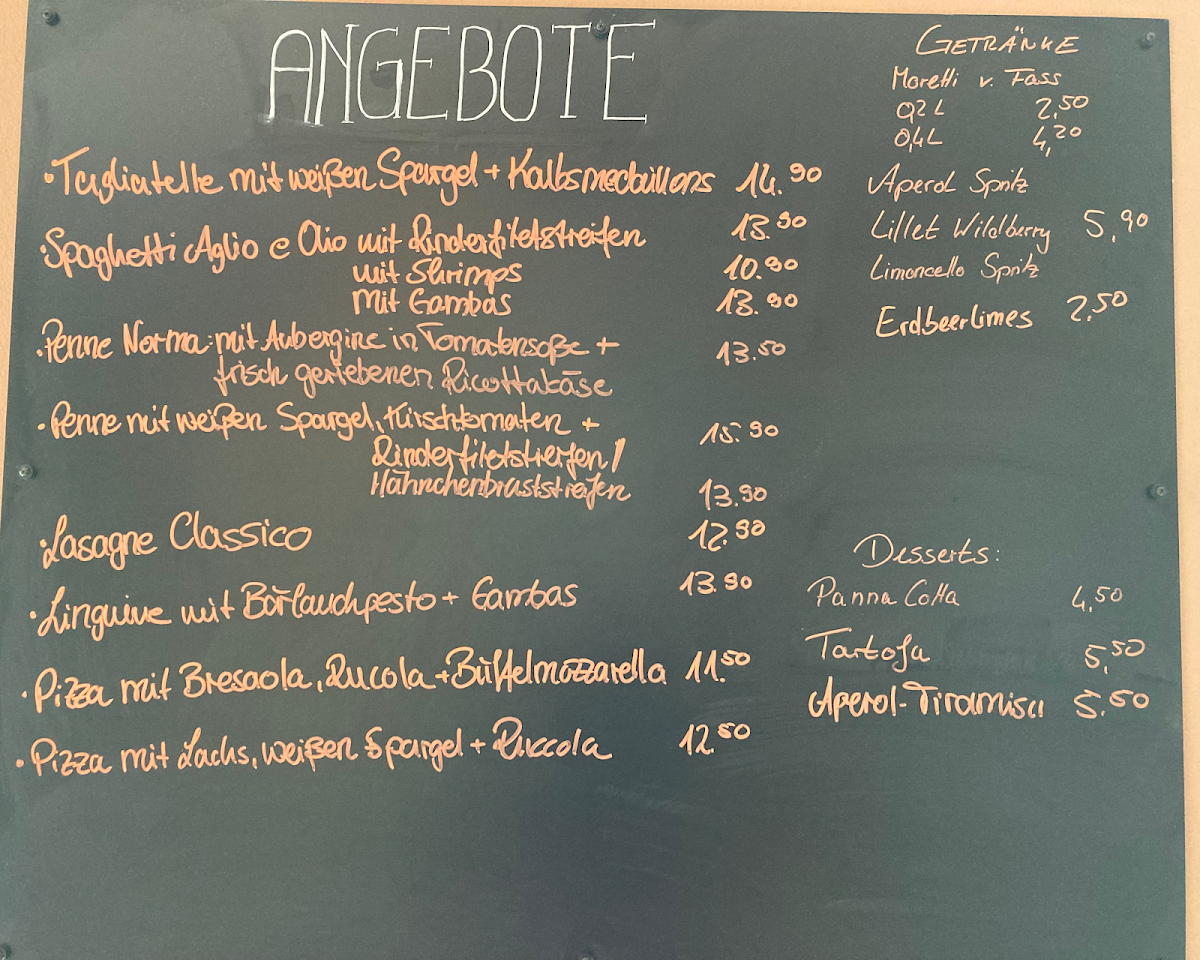 ANGEBOTE
·Tagliatelle mit weißen Spargel + Kalbsmedaillons 14.90
·Spaghetti Aglio e Olio mit Rinderfiletstreifen 13.90
mit Shrimps 10.90
mit Gambas 13.90
·Penne Norma: mit Aubergine in Tomatensoße + 13.50
frisch geriebenen Ricottakäse
·Penne mit weißen Spargel, Kirschtomaten + 15.90
Rinderfiletstreifen /
Hähnchenbraststreifen 13.90
·Lasagne Classico 12.90
·Linguine mit Bärlauchpesto + Gambas 13.90
·Pizza mit Bresaola, Rucola + Büffelmozzarella 11.50
·Pizza mit Lachs, weißen Spargel + Ruccola 12.50
GETRÄNKE
Moretti v. Fass
0,2 L 2,50
0,4 L 4,20
Aperol Spritz
Lillet Wildberry 5,90
Limoncello Spritz
Erdbeerlimes 2,50
Desserts:
Panna Cotta 4,50
Tartofa 5,50
Aperol-Tiramisu 5.50